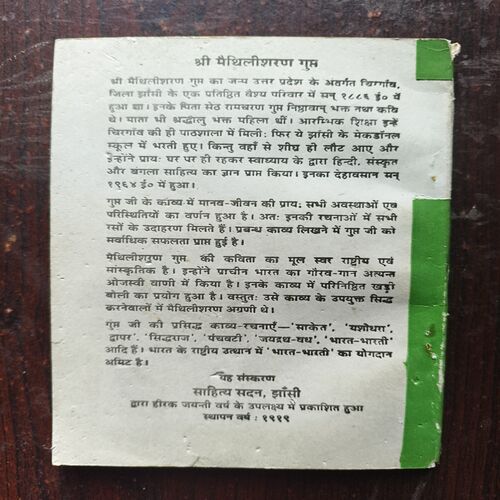 श्री मैथिलीशरण गुप्त
श्री मैथिलीशरण गुप्त का जन्म उत्तर प्रदेश के अंतर्गत चिरगाँव,
जिला झाँसी के एक प्रतिष्ठित वैश्य परिवार में सन् १८८६ ई० में
हुआ था। इनके पिता सेठ रामचरण गुप्त निष्ठावान् भक्त तथा कवि
थे। माता भी श्रद्धालु भक्त महिला थीं। आरम्भिक शिक्षा इन्हें
चिरगाँव की ही पाठशाला में मिली; फिर ये झाँसी के मेकडॉनल
स्कूल में भरती हुए। किन्तु वहाँ से शीघ्र ही लौट आए और
इन्होंने प्रायः घर पर ही रहकर स्वाध्याय के द्वारा हिन्दी, संस्कृत
और बंगला साहित्य का ज्ञान प्राप्त किया। इनका देहावसान सन्
१९६४ ई० में हुआ।
गुप्त जी के काव्य में मानव-जीवन की प्रायः सभी अवस्थाओं एवं
परिस्थितियों का वर्णन हुआ है। अतः इनकी रचनाओं में सभी
रसों के उदाहरण मिलते हैं। प्रबन्ध काव्य लिखने में गुप्त जी को
सर्वाधिक सफलता प्राप्त हुई है।
मैथिलीशरण गुप्त की कविता का मूल स्वर राष्ट्रीय एवं
सांस्कृतिक है। इन्होंने प्राचीन भारत का गौरव-गान अत्यन्त
ओजस्वी वाणी में किया है। इनके काव्य में परिनिष्ठित खड़ी
बोली का प्रयोग हुआ है। वस्तुतः उसे काव्य के उपयुक्त सिद्ध
करनेवालों में मैथिलीशरण अग्रणी थे।
गुप्त जी की प्रसिद्ध काव्य-रचनाएँ—'साकेत', 'यशोधरा',
'द्वापर', 'सिद्धराज', 'पंचवटी', 'जयद्रथ-वध', 'भारत-भारती'
आदि हैं। भारत के राष्ट्रीय उत्थान में 'भारत-भारती' का योगदान
अमिट है।
यह संस्करण
साहित्य सदन, झाँसी
द्वारा हीरक जयन्ती वर्ष के उपलक्ष्य में प्रकाशित हुआ
स्थापन वर्ष : १९१९